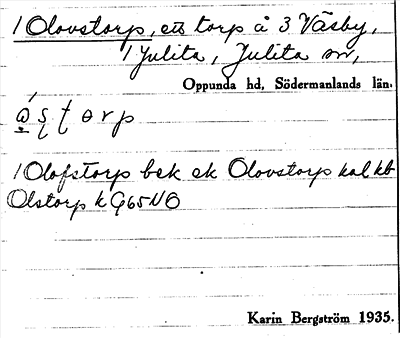 1 Olovstorp, ett torp å 3 Väsby,
1 Julita, Julita sn,
Oppunda hd, Södermanlands län.
torp
1 Olofstorp bek ek Olovstorp hal kb
Olstorp k G65NO
Karin Bergström 1935.